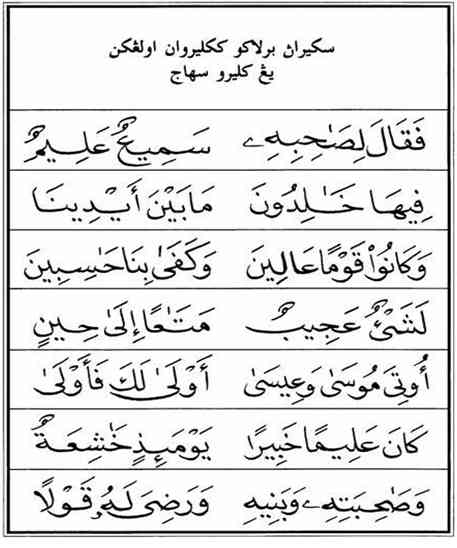 سكيراڽ برلاكو ككليروان اولڠكن
يڠ كليرو سهاج
فَقَالَ لِصَٰحِبِهِۦ سَمِيعٌ عَلِيمٌ
فِيهَا خَٰلِدُونَ مَا بَيْنَ أَيْدِينَا
وَكَانُوا۟ قَوْمًا عَالِينَ وَكَفَىٰ بِنَا حَٰسِبِينَ
لَشَىْءٌ عَجِيبٌ مَتَٰعًا إِلَىٰ حِينٍ
أُوتِىَ مُوسَىٰ وَعِيسَىٰ أَوْلَىٰ لَكَ فَأَوْلَىٰ
كَانَ عَلِيمًا خَبِيرًا يَوْمَئِذٍ خَٰشِعَةٌ
وَصَٰحِبَتِهِۦ وَبَنِيهِ وَرَضِىَ لَهُۥ قَوْلًا